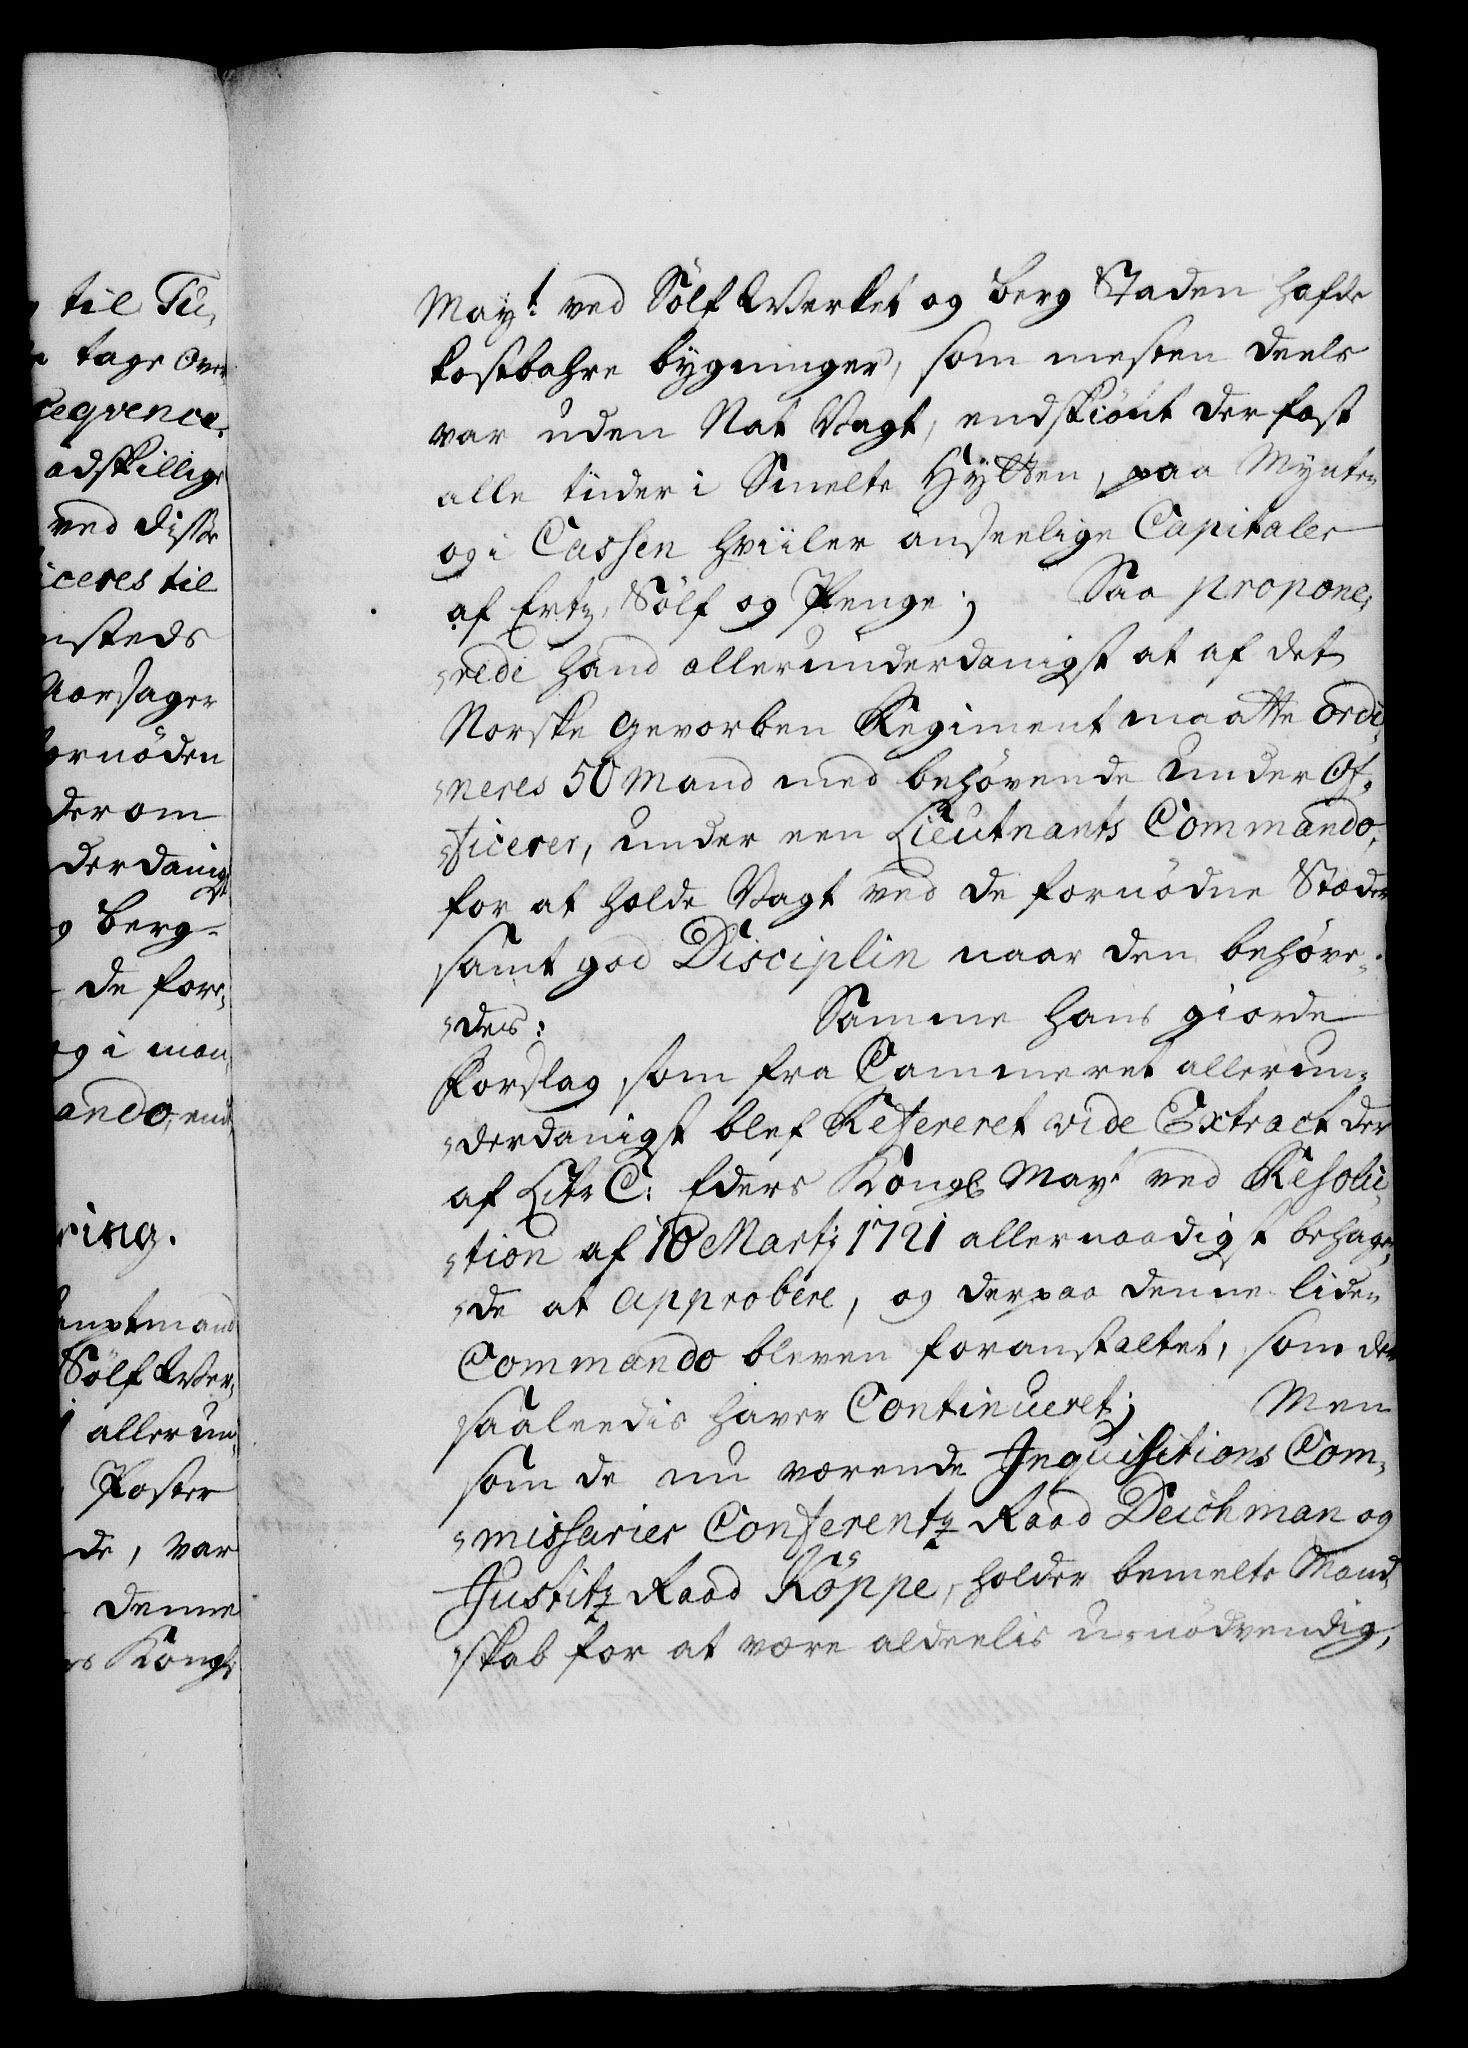 til Tu,
tage Over
ceqvence,
adskillige
ved disse
iceres til
nsteds
Aarsager
fornöden
derom
derdanigst
g Berg-
de fore,
og i man,
ando, end
ring.
auptmand
Sölf Wer,
allerun,
Poster
de, var
denne
rs Kongl:
Mayt. ved Sölf Werket og Berg Staden hafde
kostbahre bygninger, som mesten deels
var uden Nat Vagt, endskiönt der fast
alle tiider i Smelte Hÿtten, paa Mynten
og i Cassen hviiler anseelige Capitaler
af Ertz, Sölf og Penge; Saa propone,
redi hand allerunderdanigst at af det
Norske Gevorben Regiment maatte ordi,
neres 50 Mand med behövende Under Of,
ficerer, under een Lieutnants Commando,
for at holde Vagt ved de fornödne Stæder
samt god Disciplin naar den behöve,
des: Samme hans giorde
Forslag som fra Cammeret allerun,
derdanigst blef Refereret vide Extract der
af Litr C: Eders Kongl May: ved Resolu,
tion af 10 Martz 1721 allernaadigst behage,
de at approbere, og derpaa denne liden
Commando bleven foranstaltet, som der
saaleedis haver Continueret; Men
som de nu værende Inquisitions Com,
missarier Conferentz Raad Deichman og
Justitz Raad Röppe, holder bemelte Mand,
skab for at være aldeelis u-nödvendig,